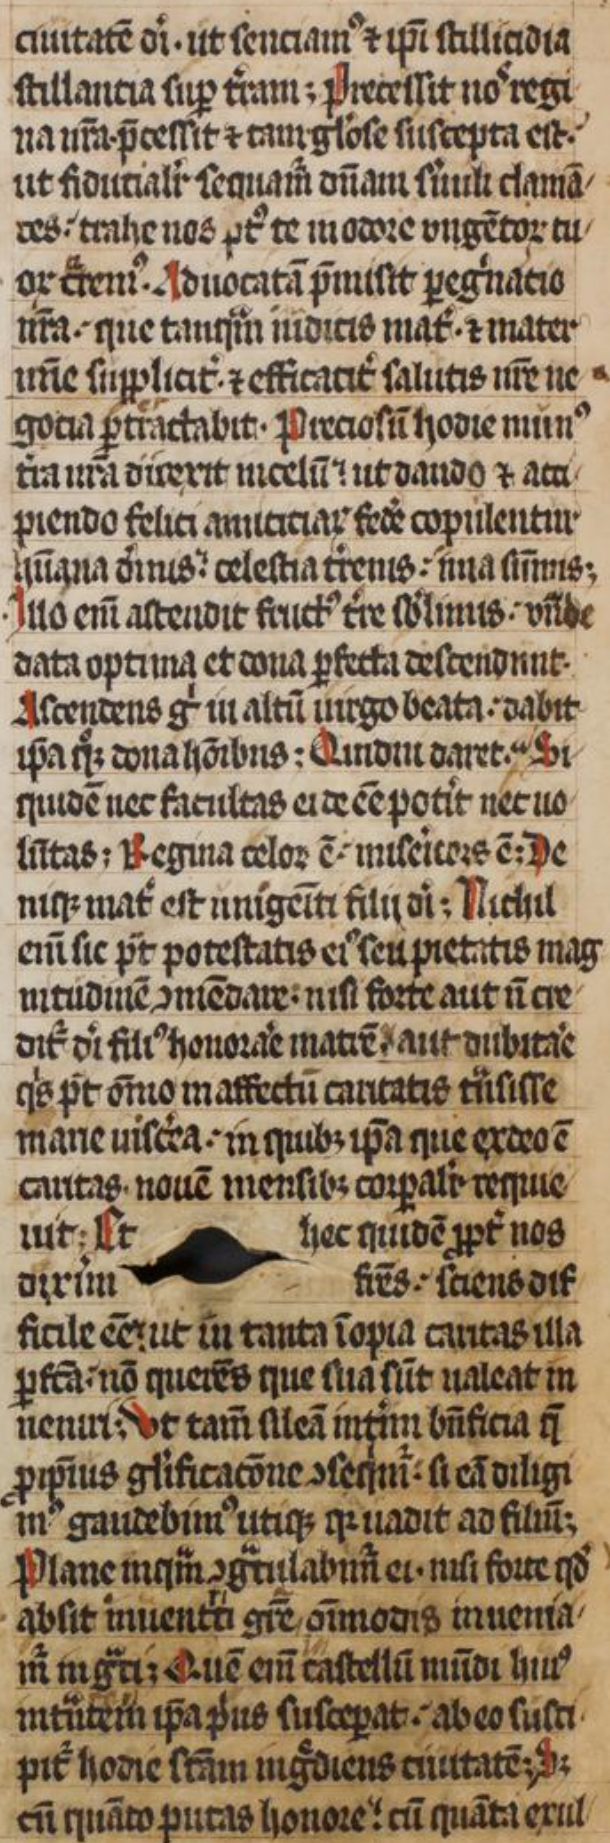 ciuitatē dī. ut senciamꝰ ⁊ ip̄i stillicidia
stillantia suꝑ tr̄am; Precessit noˢ regi
na nr̄a. p̄cessit ⁊ tam gl̓ose suscepta est.
ut fiducialr̓ sequam̄ dn̄am suu͛li clamā
tes. trahe nos pꝰt te in odore ungētoꝝ tu
oꝝ c̄rem̓ꝰ. Aduocatā p̄misit ꝑeg̓natio
nr̄a. que tanqᵃm iudicis mat̓. ⁊ mater
mīe suppliciť. ⁊ efficaciť salutis nr̄e ne
gocia ꝑtractabit. Preciosū hodie munꝰ
tr̄a nr̄a direxit in celū. ut dando ⁊ acci
piendo felici amiciciaꝝ fedē copulentur
hūana diuīs. celestia tr̄enis. ima sūmis;
Illo em̄ ascendit fructꝰ tr̄e sb̓limis. unde
data optima et dona ꝑfecta descendunt.
Ascendens gͦ in altū uirgo beata. dabit
ip̄a qꝫ dona hōibus; Quidni daret. Si
quidē nec facultas ei deēe potit̓ nec uo
lūtas; Regina celoꝝ ē. miscīcors ē; De
niqꝫ mat̓ est unigeīti filii dī; Nichil
em̄ sic pt̄ potestatis eiꝰ seu pietatis mag
nitudinē ꝯmēdare. nisi forte aut n̄ cre
dit̓ dī filiꝰ honorāe matrē. aut dubitāe
qͥs pt̄ ōnīo in affectū caritatis tͣnsisse
marie uisc̄ra. in quibꝫ ip̄a que ex deo ē
caritas. nouē mensibꝫ corꝑalr̓ requie
uit; Et hec quidē ꝓpt̓ nos
dixim fr̄es. sciens dif
ficile ēe. ut in tanta īopia caritas illa
ꝑfc̄a. nō querēs que sua sūt ualeat in
ueniri; Ut tam̄ sileā int̓im bn̄ficia q̄
ꝓ ip̄ius gl̓ificacōne ꝯseqm̄ᷣ. si eā diligi
mꝰ gaudebimꝰ utiqꝫ qꝛ uadit ad filiū;
Plane inqᵃm ꝯgᵃtulabim̄ ei. nisi forte qd̄
absit inuentͥci gr̄e oīmodis inuenia
m̄ ingᵃti; Quē em̄ castellū mūdi huiꝰ
intͣntem ip̄a pͥus susceꝑat. ab eo susci
pit̓ hodie sc̄am ingᵉdiens ciuitatē; Sꝫ
cū quāto putas honore. cū quāta exul